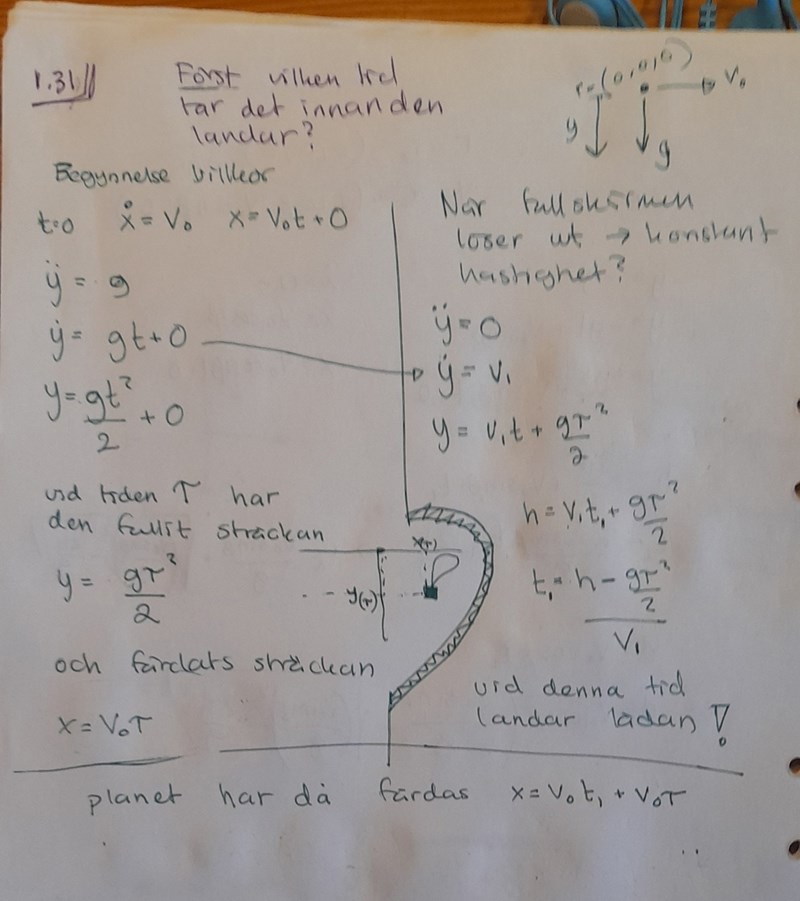 1.31
Först vilken tid
tar det innan den
landar?
r=(0,0,0)
V₀
y
g
Begynnelse villkor
t=0 ẋ = V₀ x = V₀t + 0
ÿ = g
ẏ = gt + 0
y = gt²/2 + 0
vid tiden τ har
den fallit sträckan
y = gτ²/2
och färdats sträckan
x = V₀τ
När fallskärmen
löser ut → konstant
hastighet?
ÿ = 0
ẏ = V₁
y = V₁t + gτ²/2
x(τ)
y(τ)
h = V₁t₁ + gτ²/2
t₁ = (h - gτ²/2)/V₁
vid denna tid
landar lådan !
planet har då färdas x = V₀t₁ + V₀τ